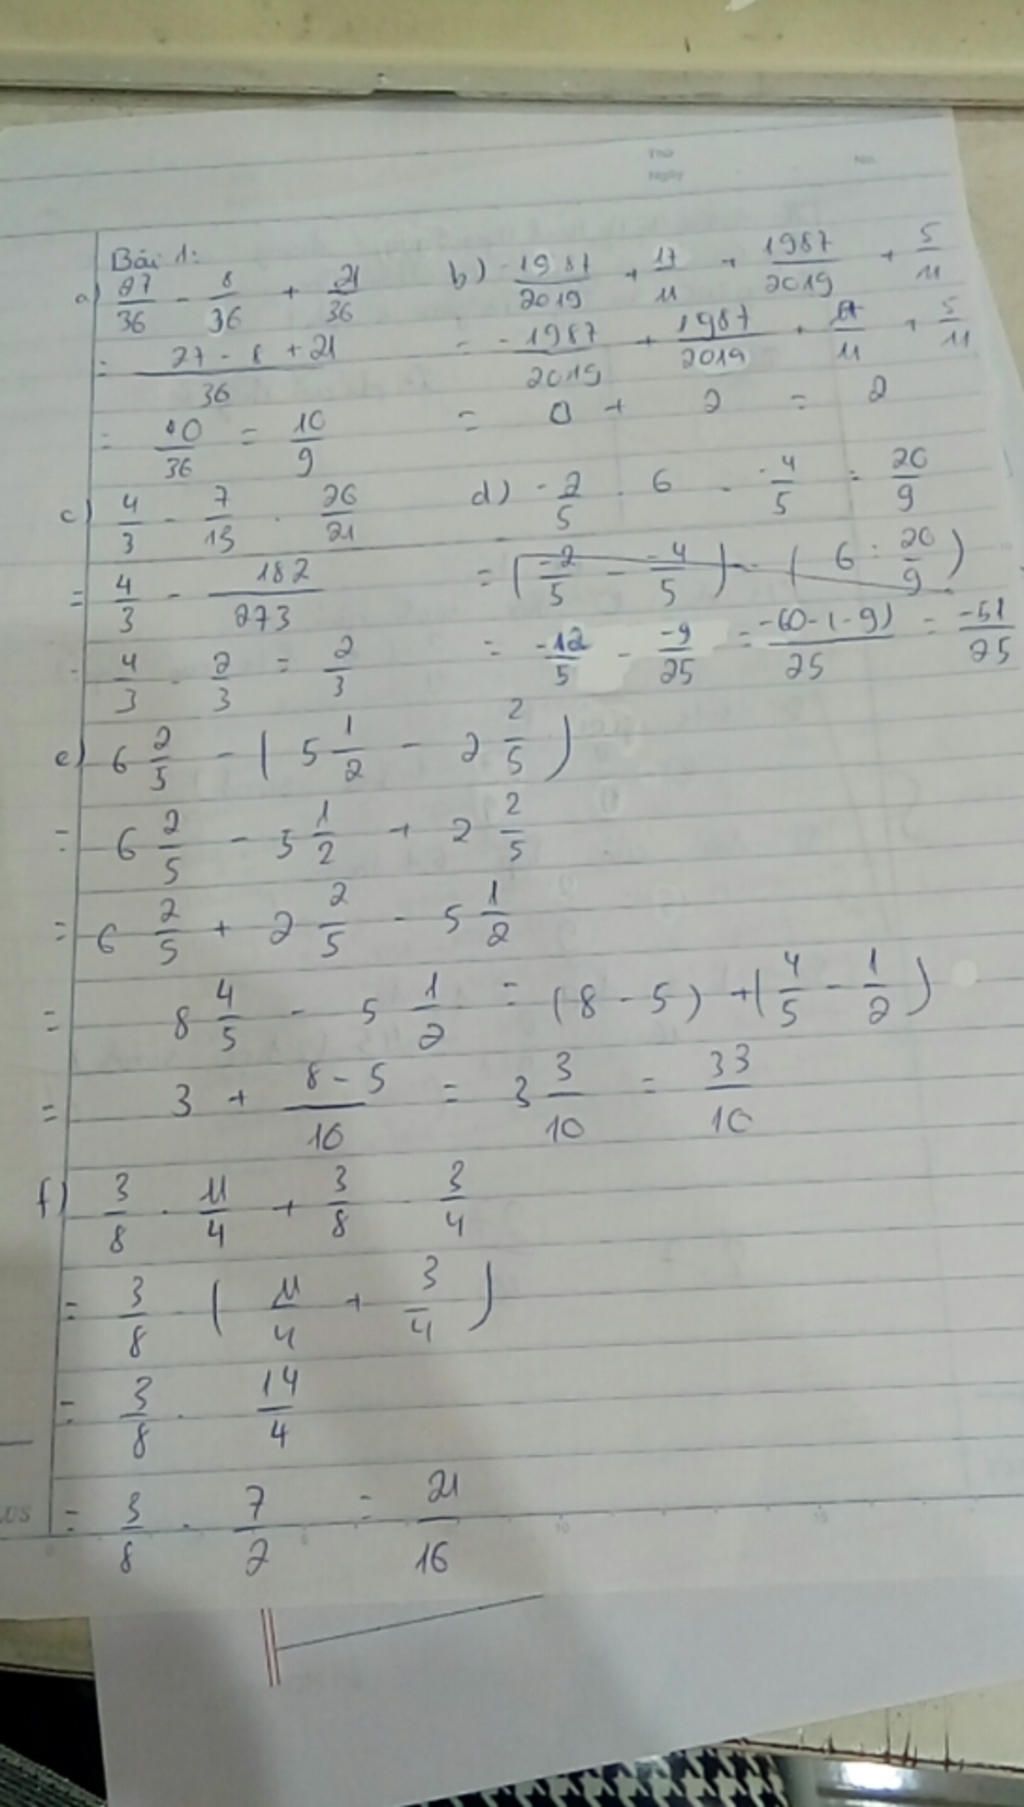 Thứ
Ngày
No.
Bài 1:
a) 27/36 - 8/36 + 21/36
= (27 - 8 + 21)/36
= 40/36 = 10/9
b) -1987/2019 + 17/11 + 1987/2019 + 5/11
= -1987/2019 + 1987/2019 + 17/11 + 5/11
= 0 + 2 = 2
c) 4/3 - 7/13 . 26/21
= 4/3 - 182/273
= 4/3 - 2/3 = 2/3
d) -2/5 . 6 - -4/5 : 20/9
= (-2/5 - -4/5) - (6 : 20/9)
= -12/5 - -9/25 = (-60-(-9))/25 = -51/25
e) 6 2/5 - (5 1/2 - 2 2/5)
= 6 2/5 - 5 1/2 + 2 2/5
= 6 2/5 + 2 2/5 - 5 1/2
= 8 4/5 - 5 1/2 = (8 - 5) + (4/5 - 1/2)
= 3 + (8 - 5)/10 = 3 3/10 = 33/10
f) 3/8 . 11/4 + 3/8 . 3/4
= 3/8 . (11/4 + 3/4)
= 3/8 . 14/4
= 3/8 . 7/2 = 21/16